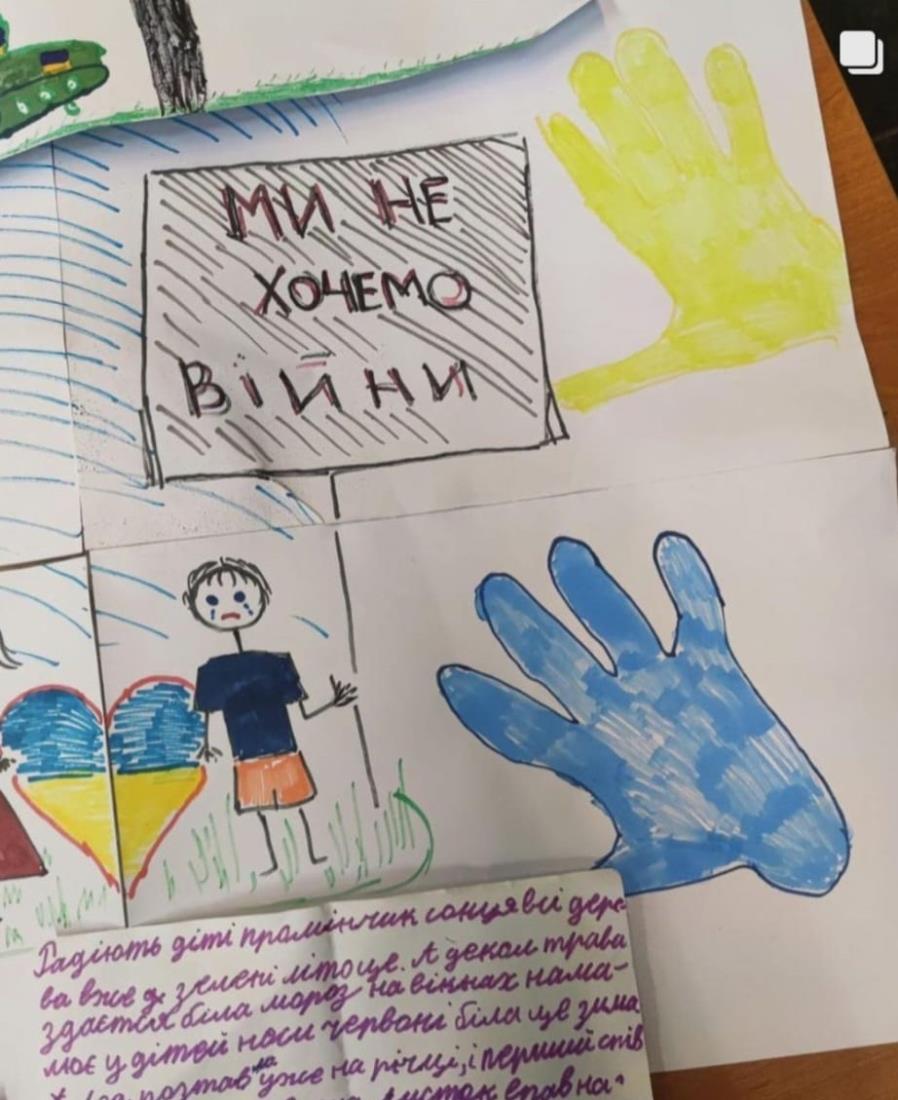 МИ НЕ
ХОЧЕМО
ВІЙНИ
Радіють діті промінчик сонця всі дере-
ва вже в зелені літо це. А деколи трава
здається біла мороз на вікнах нама-
лює у дітей носи червоні біла це зима
розтав уже на річці, і перший спів
листок